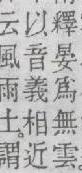 釋晏爲無雲
以音義相近
云風雨土謂